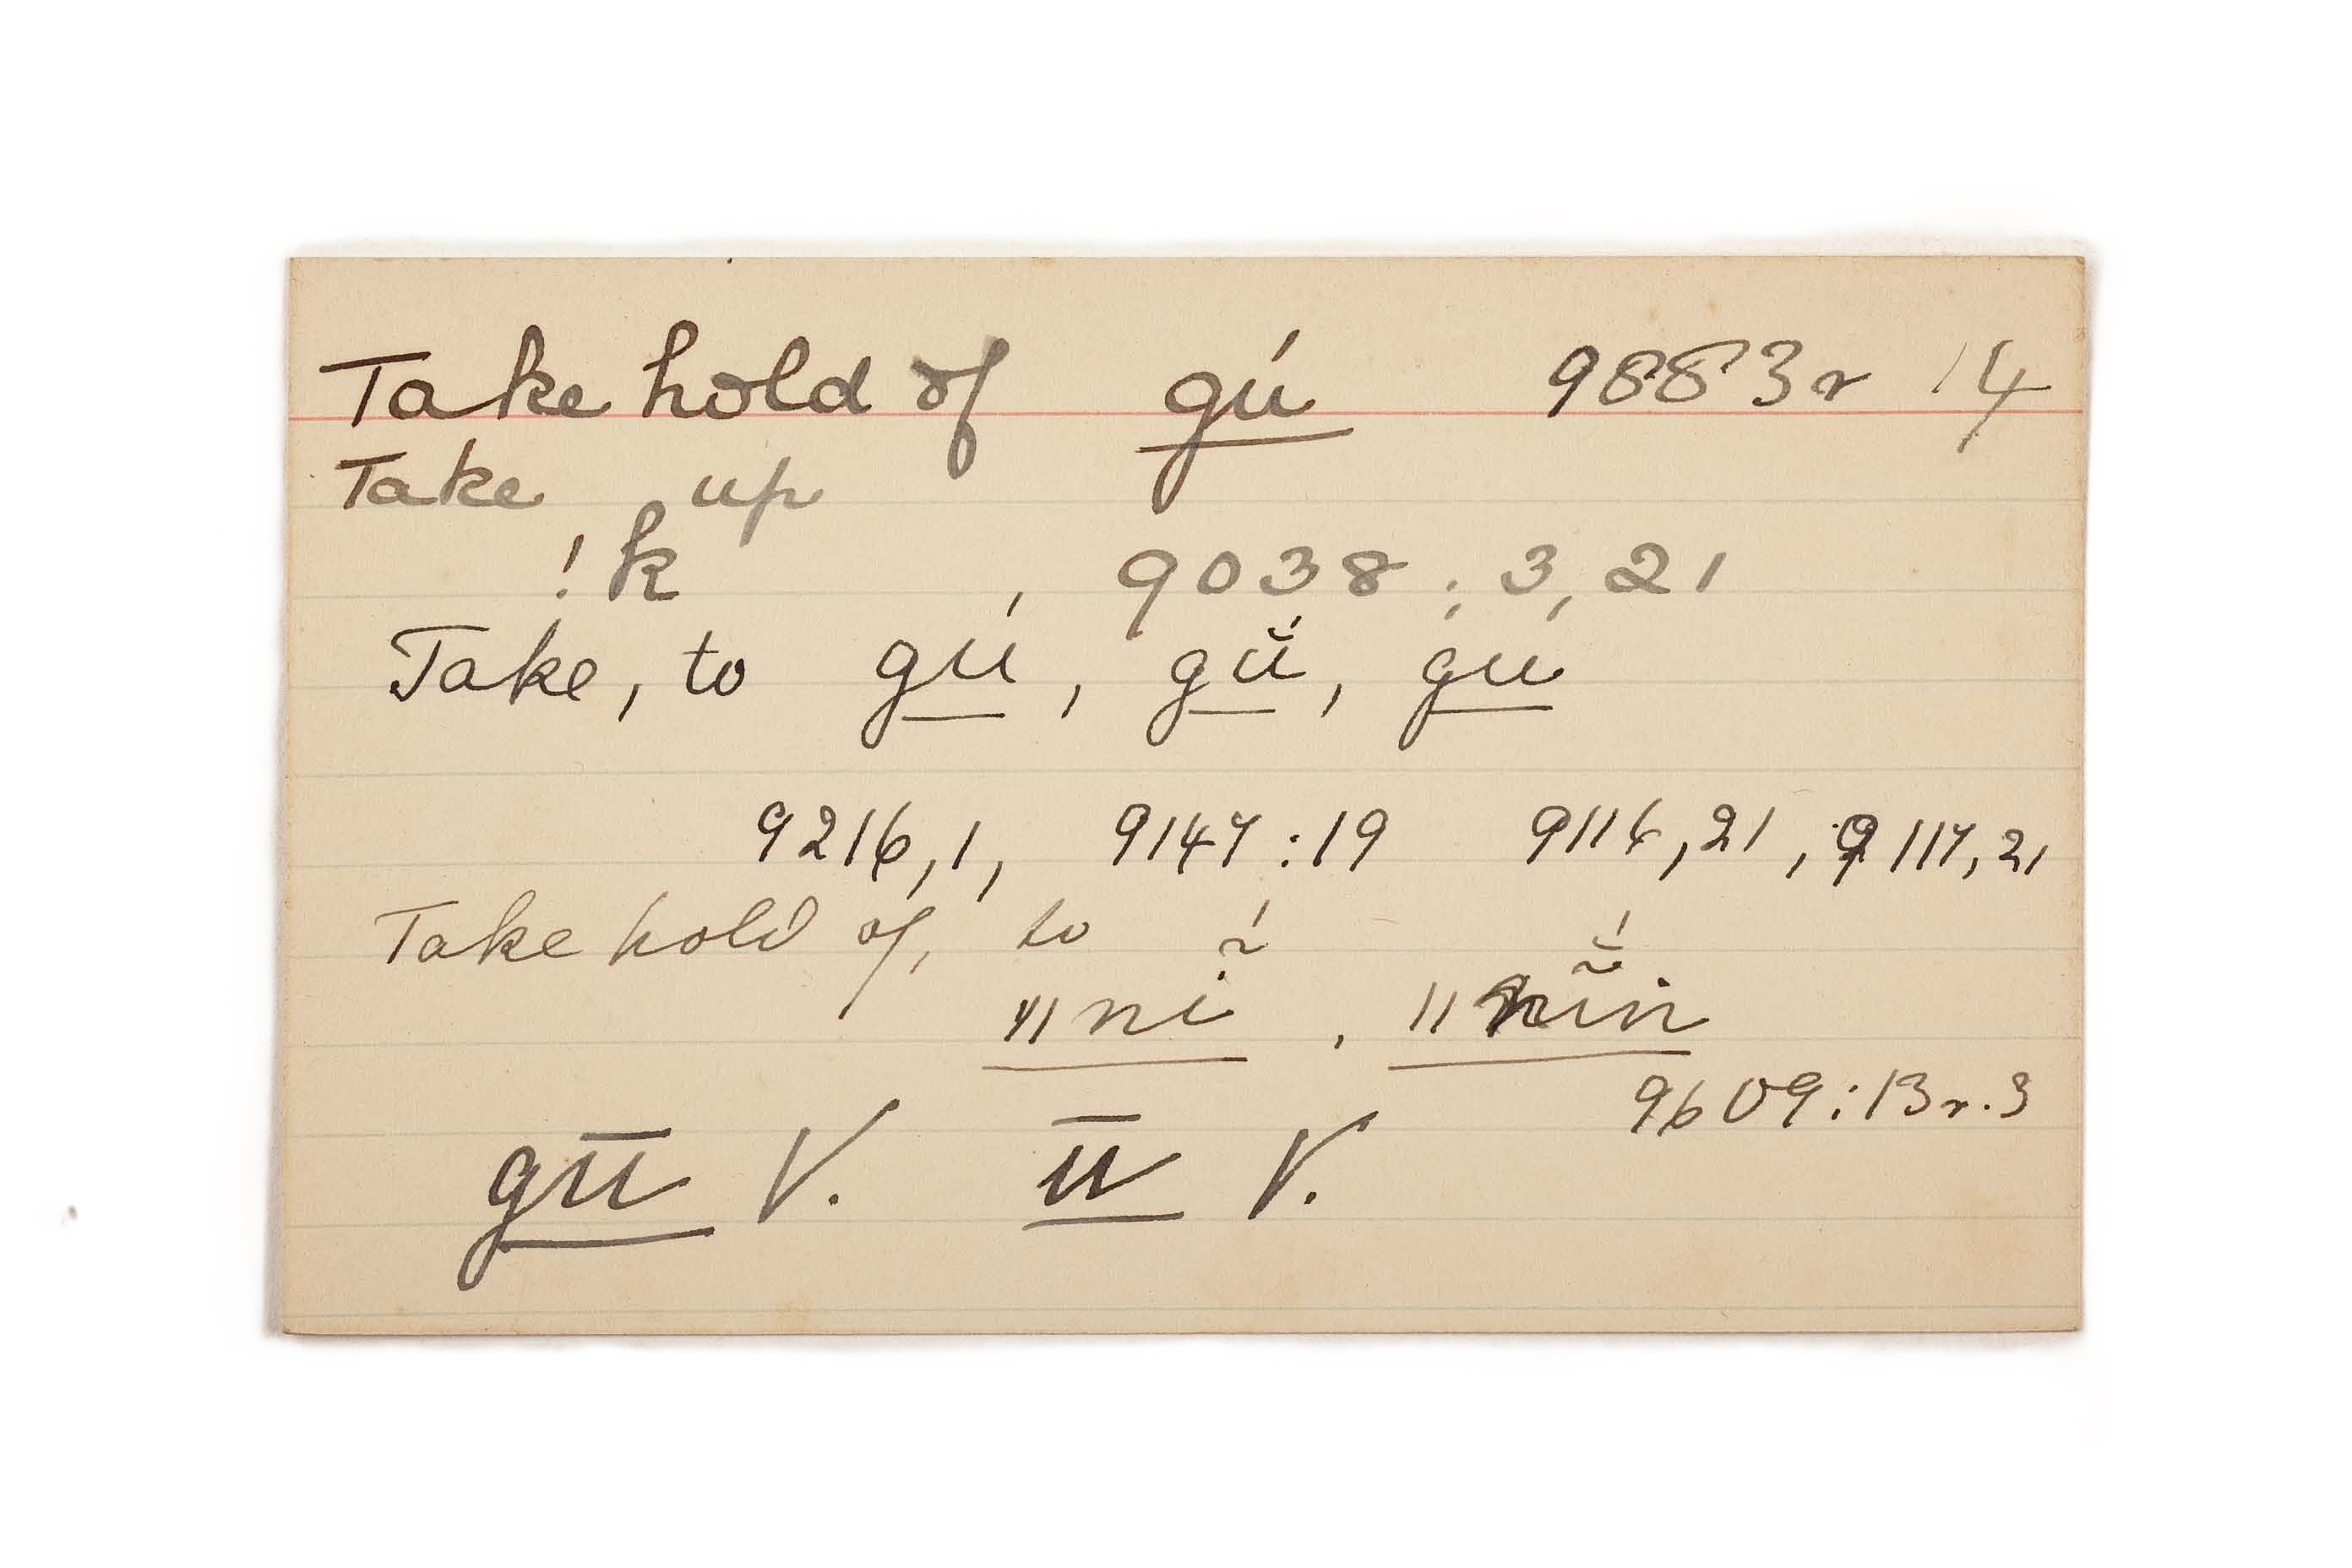 Take hold of gú 9883r 14
Take up
!k , 9038 : 3, 21
Take, to gú, gŭ́, gú
9216,1, 9147:19 9116,21, 9117,21
Take hold of, to
ǁnĩ́ , ǁnĩ̆́n
9609:13r.3
gū V. ū V.